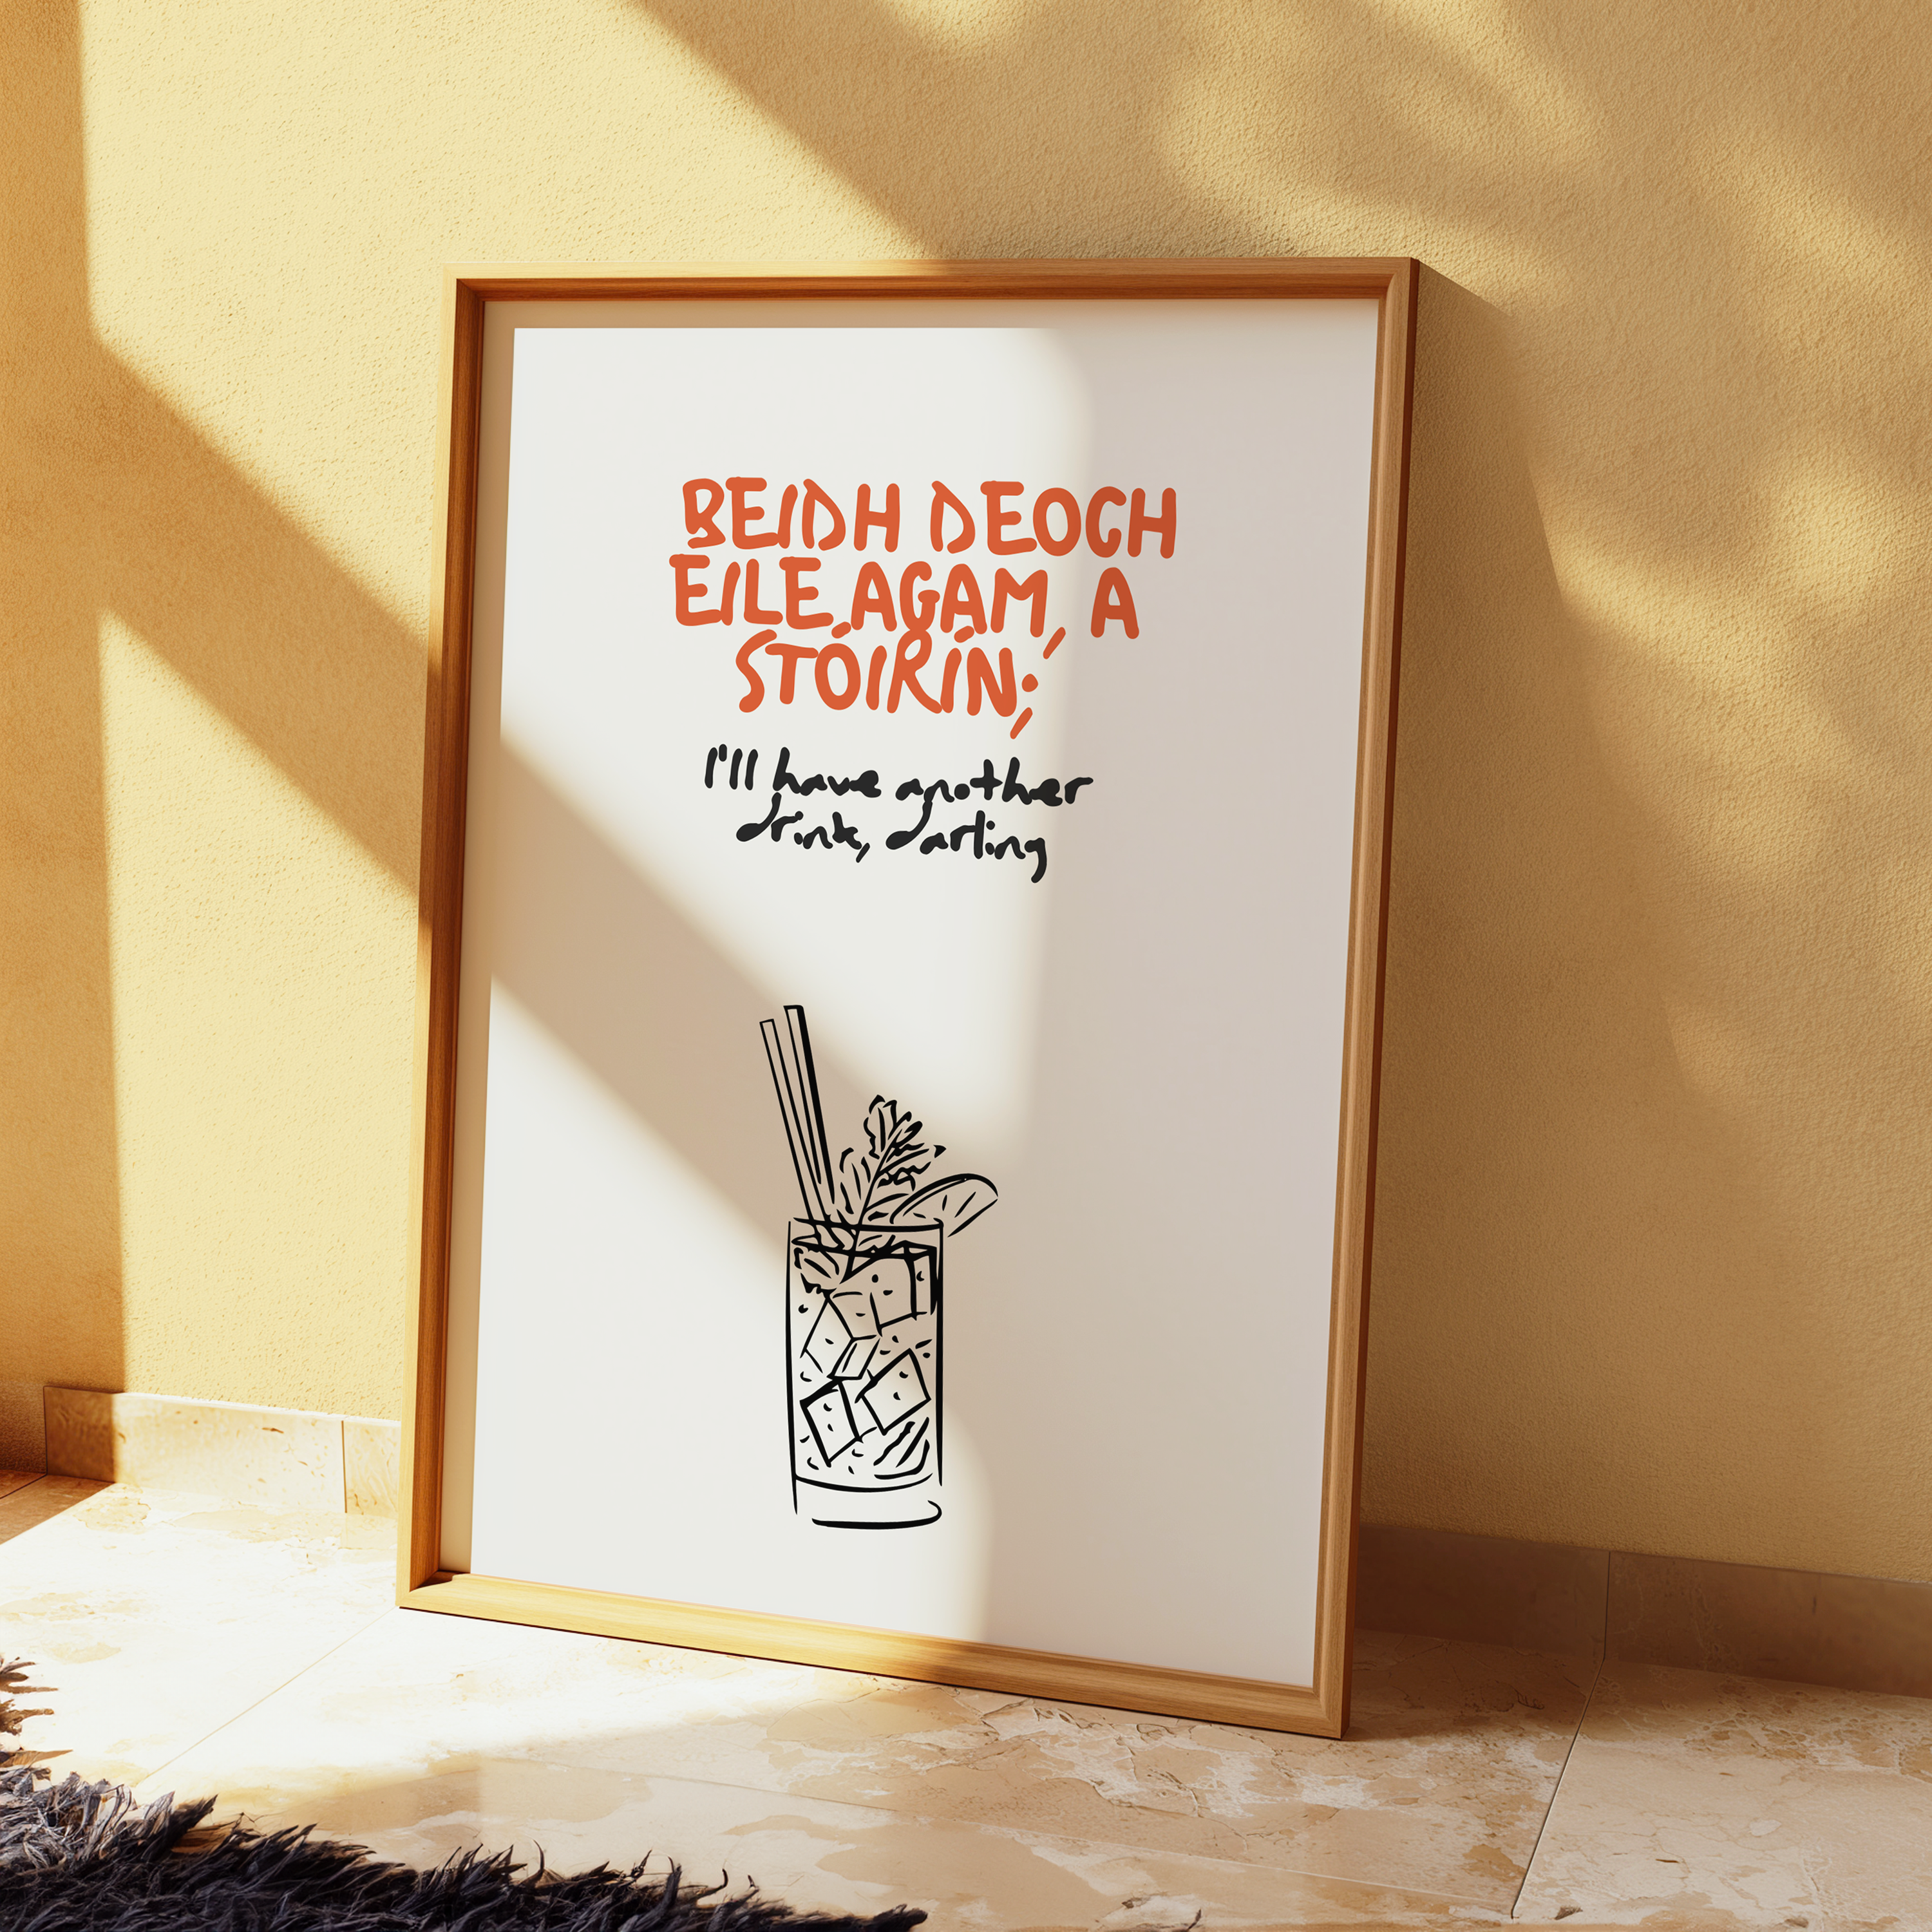 BEIDH DEOCH
EILE AGAM, A
STÓIRÍN;
I'll have another
drink, darling